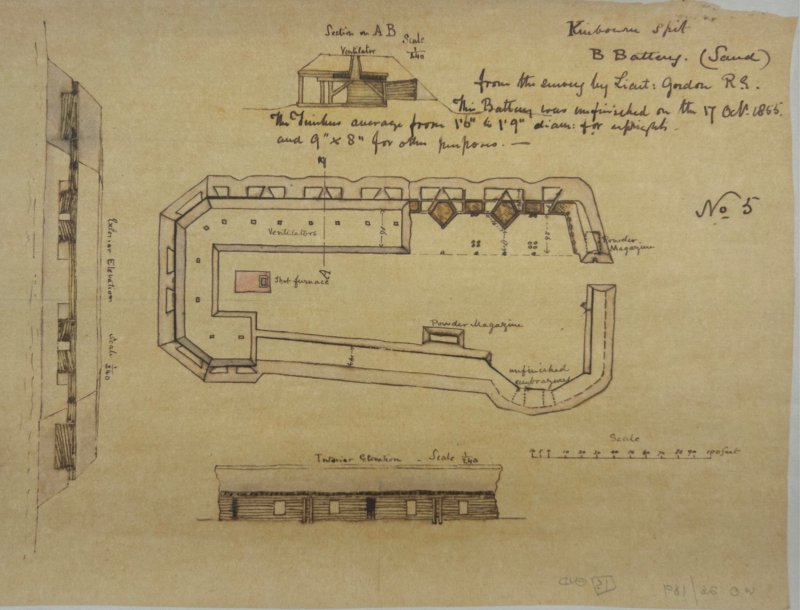 Kinbourn Spit
B Battery. (Sand)
from the survey by Lieut: Gordon R.E.
The Battery was unfinished on the 17 Oct. 1855.
The Timbers average from 1'6" to 1'9" diam: for uprights.
and 9" x 8" for other purposes. —
Section on A B
Scale 1/240
Ventilator
No 5
A
Ventilators
Powder Magazine
Shot furnace
A
Powder Magazine
unfinished embrazures
Exterior Elevation Scale 1/240
Scale
100 feet
Interior Elevation - Scale 1/240